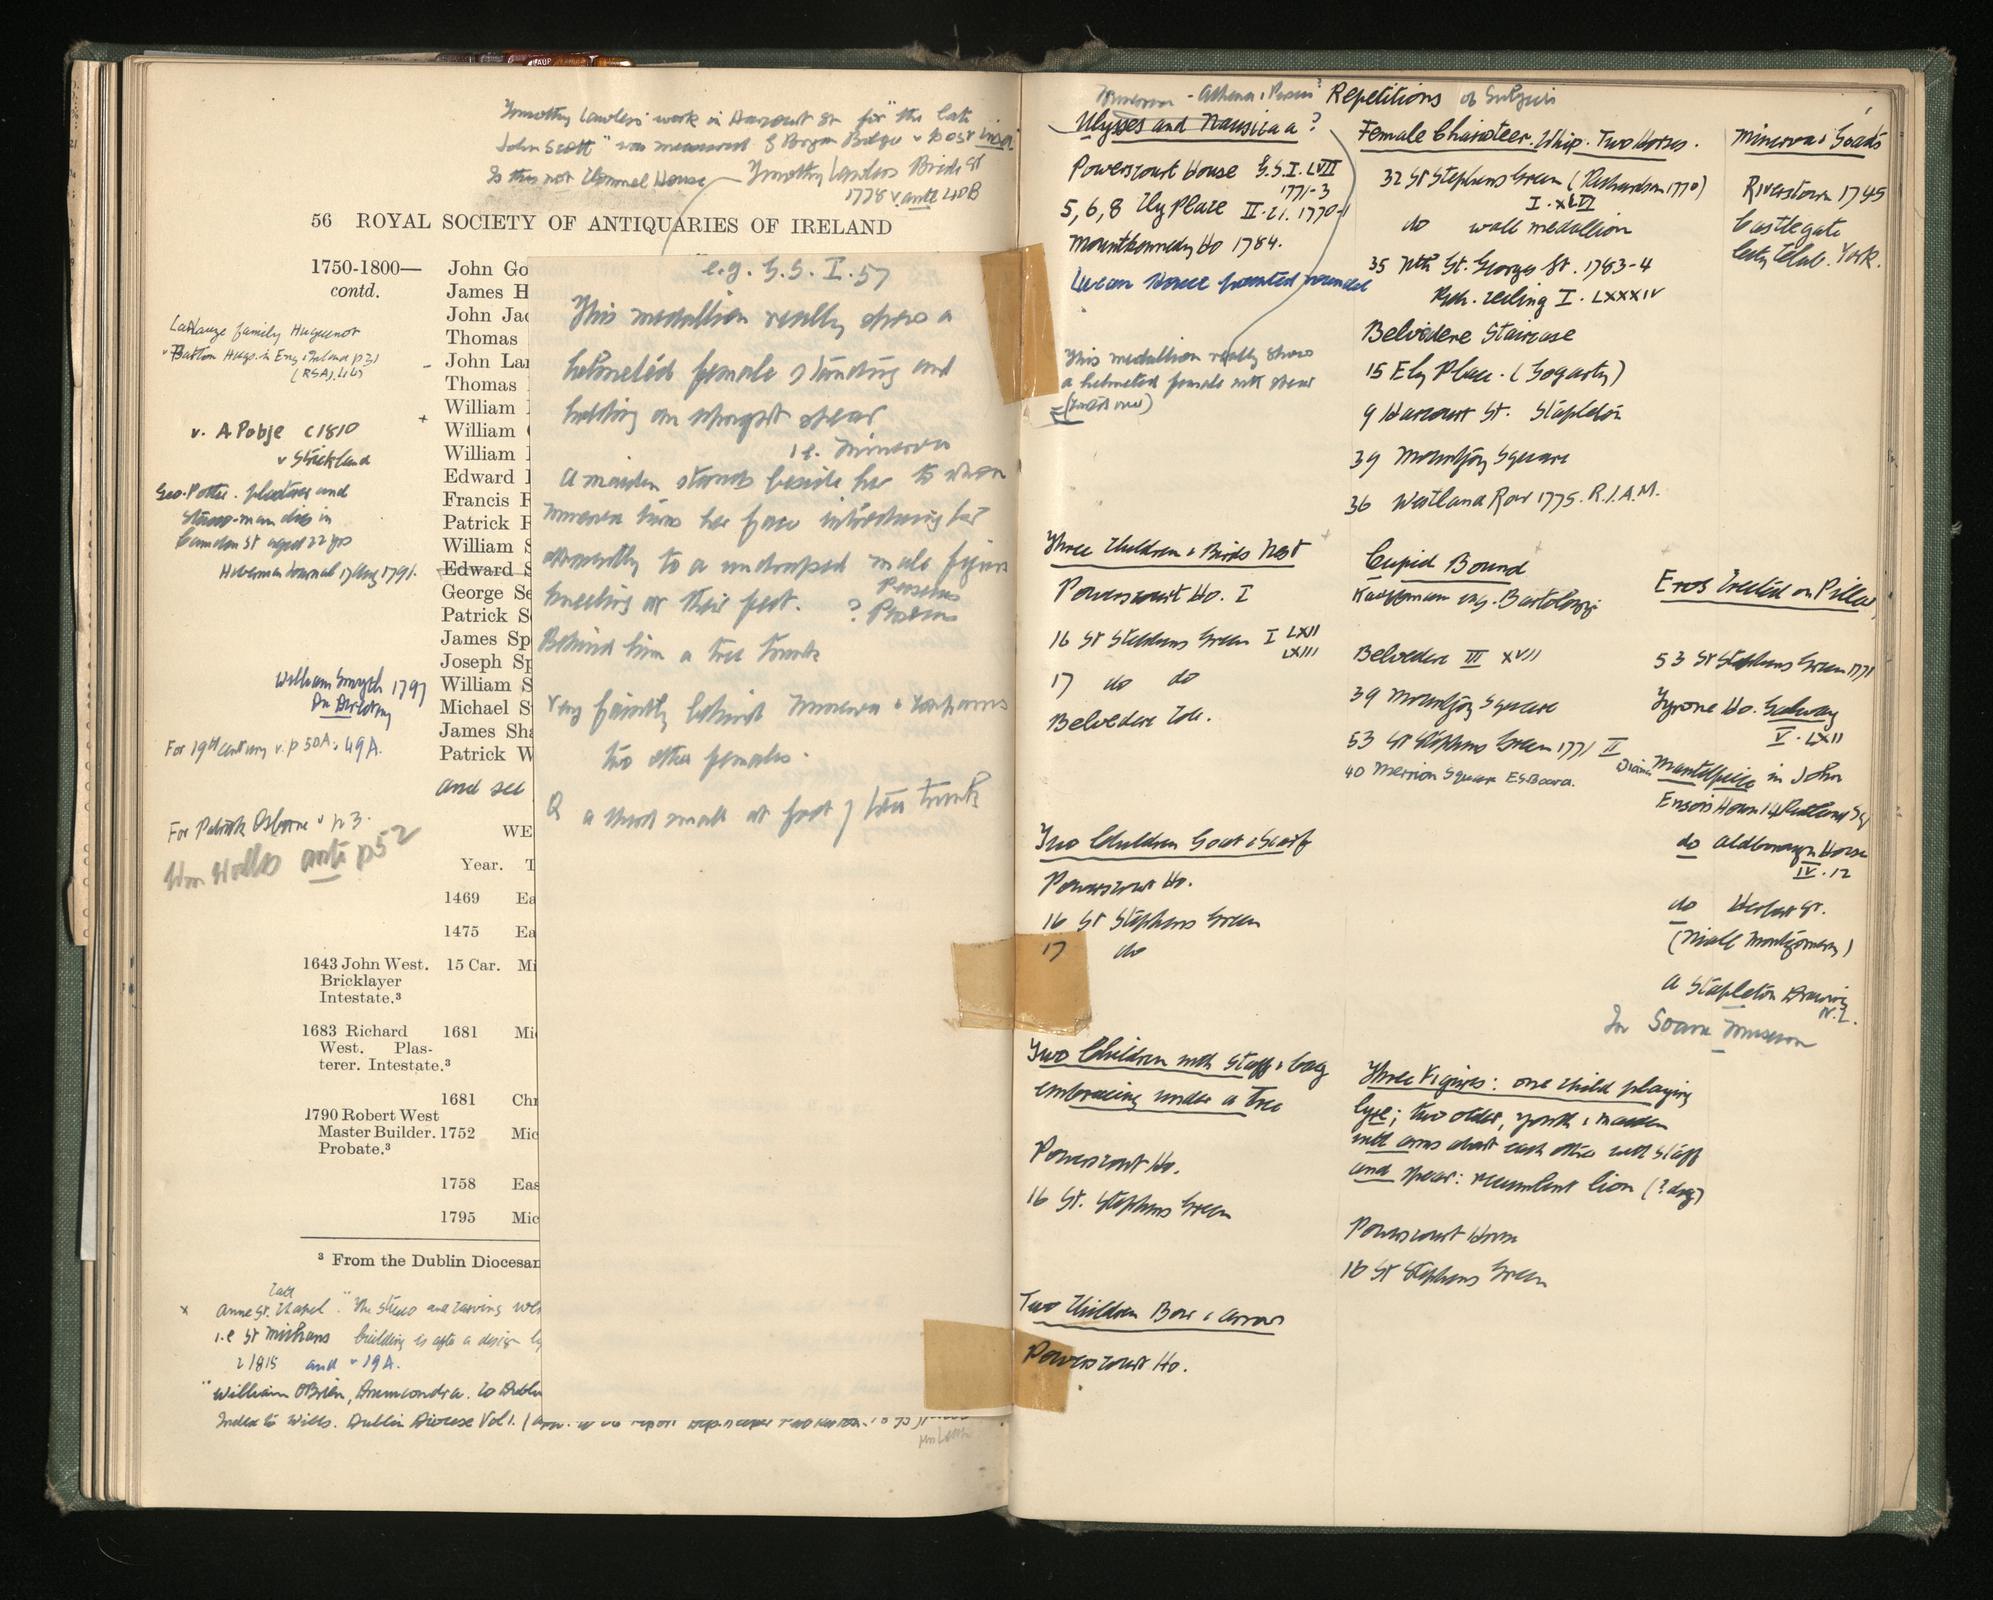 Timothy Lawless' work in Harcourt St for "the late
John Scott" was measured
Is this not Clonmel House — Timothy Lawless Bride St
1778 v. ante 40B
56 ROYAL SOCIETY OF ANTIQUARIES OF IRELAND
1750-1800—
contd.
John Go
James H
John Jac
Thomas
John Lar
Thomas
William
William
William
Edward
Francis
Patrick
William S
Edward S
George Se
Patrick S
James Sp
Joseph Sp
William S
Michael S
James Sha
Patrick W
and see
family Huguenot
Hugs. in Eng & Ireland p 31
(RSA) Lib
v. A Pobje c1810
v Strickland
Geo. Potter. plasterer and
Stucco-man dies in
Camden St aged 22 yrs
Hibernian Journal 17 Aug 1791.
William Smyth 1797
For 19th century v. p 50A & 49A.
For Patrick Osborne v p 3.
ante p 52
WE
Year. T
1469 Ea
1475 Ea
1643 John West. 15 Car. Mi
Bricklayer
Intestate.³
1683 Richard 1681 Mi
West. Plas-
terer. Intestate.³
1681 Chr
1790 Robert West
Master Builder. 1752 Mic
Probate.³
1758 Eas
1795 Mic
³ From the Dublin Diocesan
x Anne St. Chapel. "The stucco and carving
i.e St Michans building is after a design by
c 1815 and v 19A.
"William OBrien, Drumcondra. Co Dublin
Index to Wills. Dublin Diocese Vol 1.
e.g. G.S. I. 57
This medallion really shows a
helmeted female standing and
holding an upright spear
i.e. Minerva
A maiden stands beside her to whom
Minerva turns her face introducing her
apparently to a undraped male figure
kneeling at their feet. Perseus
?
Behind him a tree trunk
Very faintly behind Minerva &
two other females.
Q a third small at foot of tree trunk
Minerva - Athena & Repetitions of Subjects
Ulysses and Nausicaa?
Powerscourt House G.S. I. LVII
1771-3
5, 6, 8 Ely Place II. 21. 1770-1
Mountkennedy Ho 1784.
Lucan House painted roundel
This medallion really shows
a helmeted female with spear
Female Charioteer. Whip. Two Horses.
32 St Stephens Green (Richardson 1770)
I. XLVI
do wall medallion
35 Nth St. Georges St. 1783-4
ceiling I. LXXXIV
Belvedere Staircase
15 Ely Place. (Gogarty)
9 Harcourt St. Stapleton
39 Mountjoy Square
36 Westland Row 1775. R.I.A.M.
Minerva & Goats
Riverstown 1745
Castlegate
York.
Three Children & Birds Nest
Powerscourt Ho. I
16 St Stephens Green I LXII
LXIII
17 do do
Belvedere
Cupid Bound
Kauffmann eng. Bartolozzi
Belvedere III XVII
39 Mountjoy Square
53 St Stephens Green 1771 II
40 Merrion Square E.S. Board.
Eros Erected on Pillar
53 St Stephens Green 1771
Tyrone Ho. Galway
V. LXII
Mantelpiece in John
Ensor's House 14 Rutland Sq
do Aldborough House
IV. 12
do Herbert St.
(Niall Montgomery)
A Stapleton Drawing
N.L.
In Soane Museum
Two Children Goat & Scarf
Powerscourt Ho.
16 St Stephens Green
17 do
Two Children with Staff & bag
embracing under a Tree
Powerscourt Ho.
16 St. Stephens Green
Three Figures: one child playing
lyre; two older, youth & maiden
with arms about each other with staff
and spear: recumbent lion (? dog)
Powerscourt House
16 St Stephens Green
Two Children Bow & arrow
Powerscourt Ho.